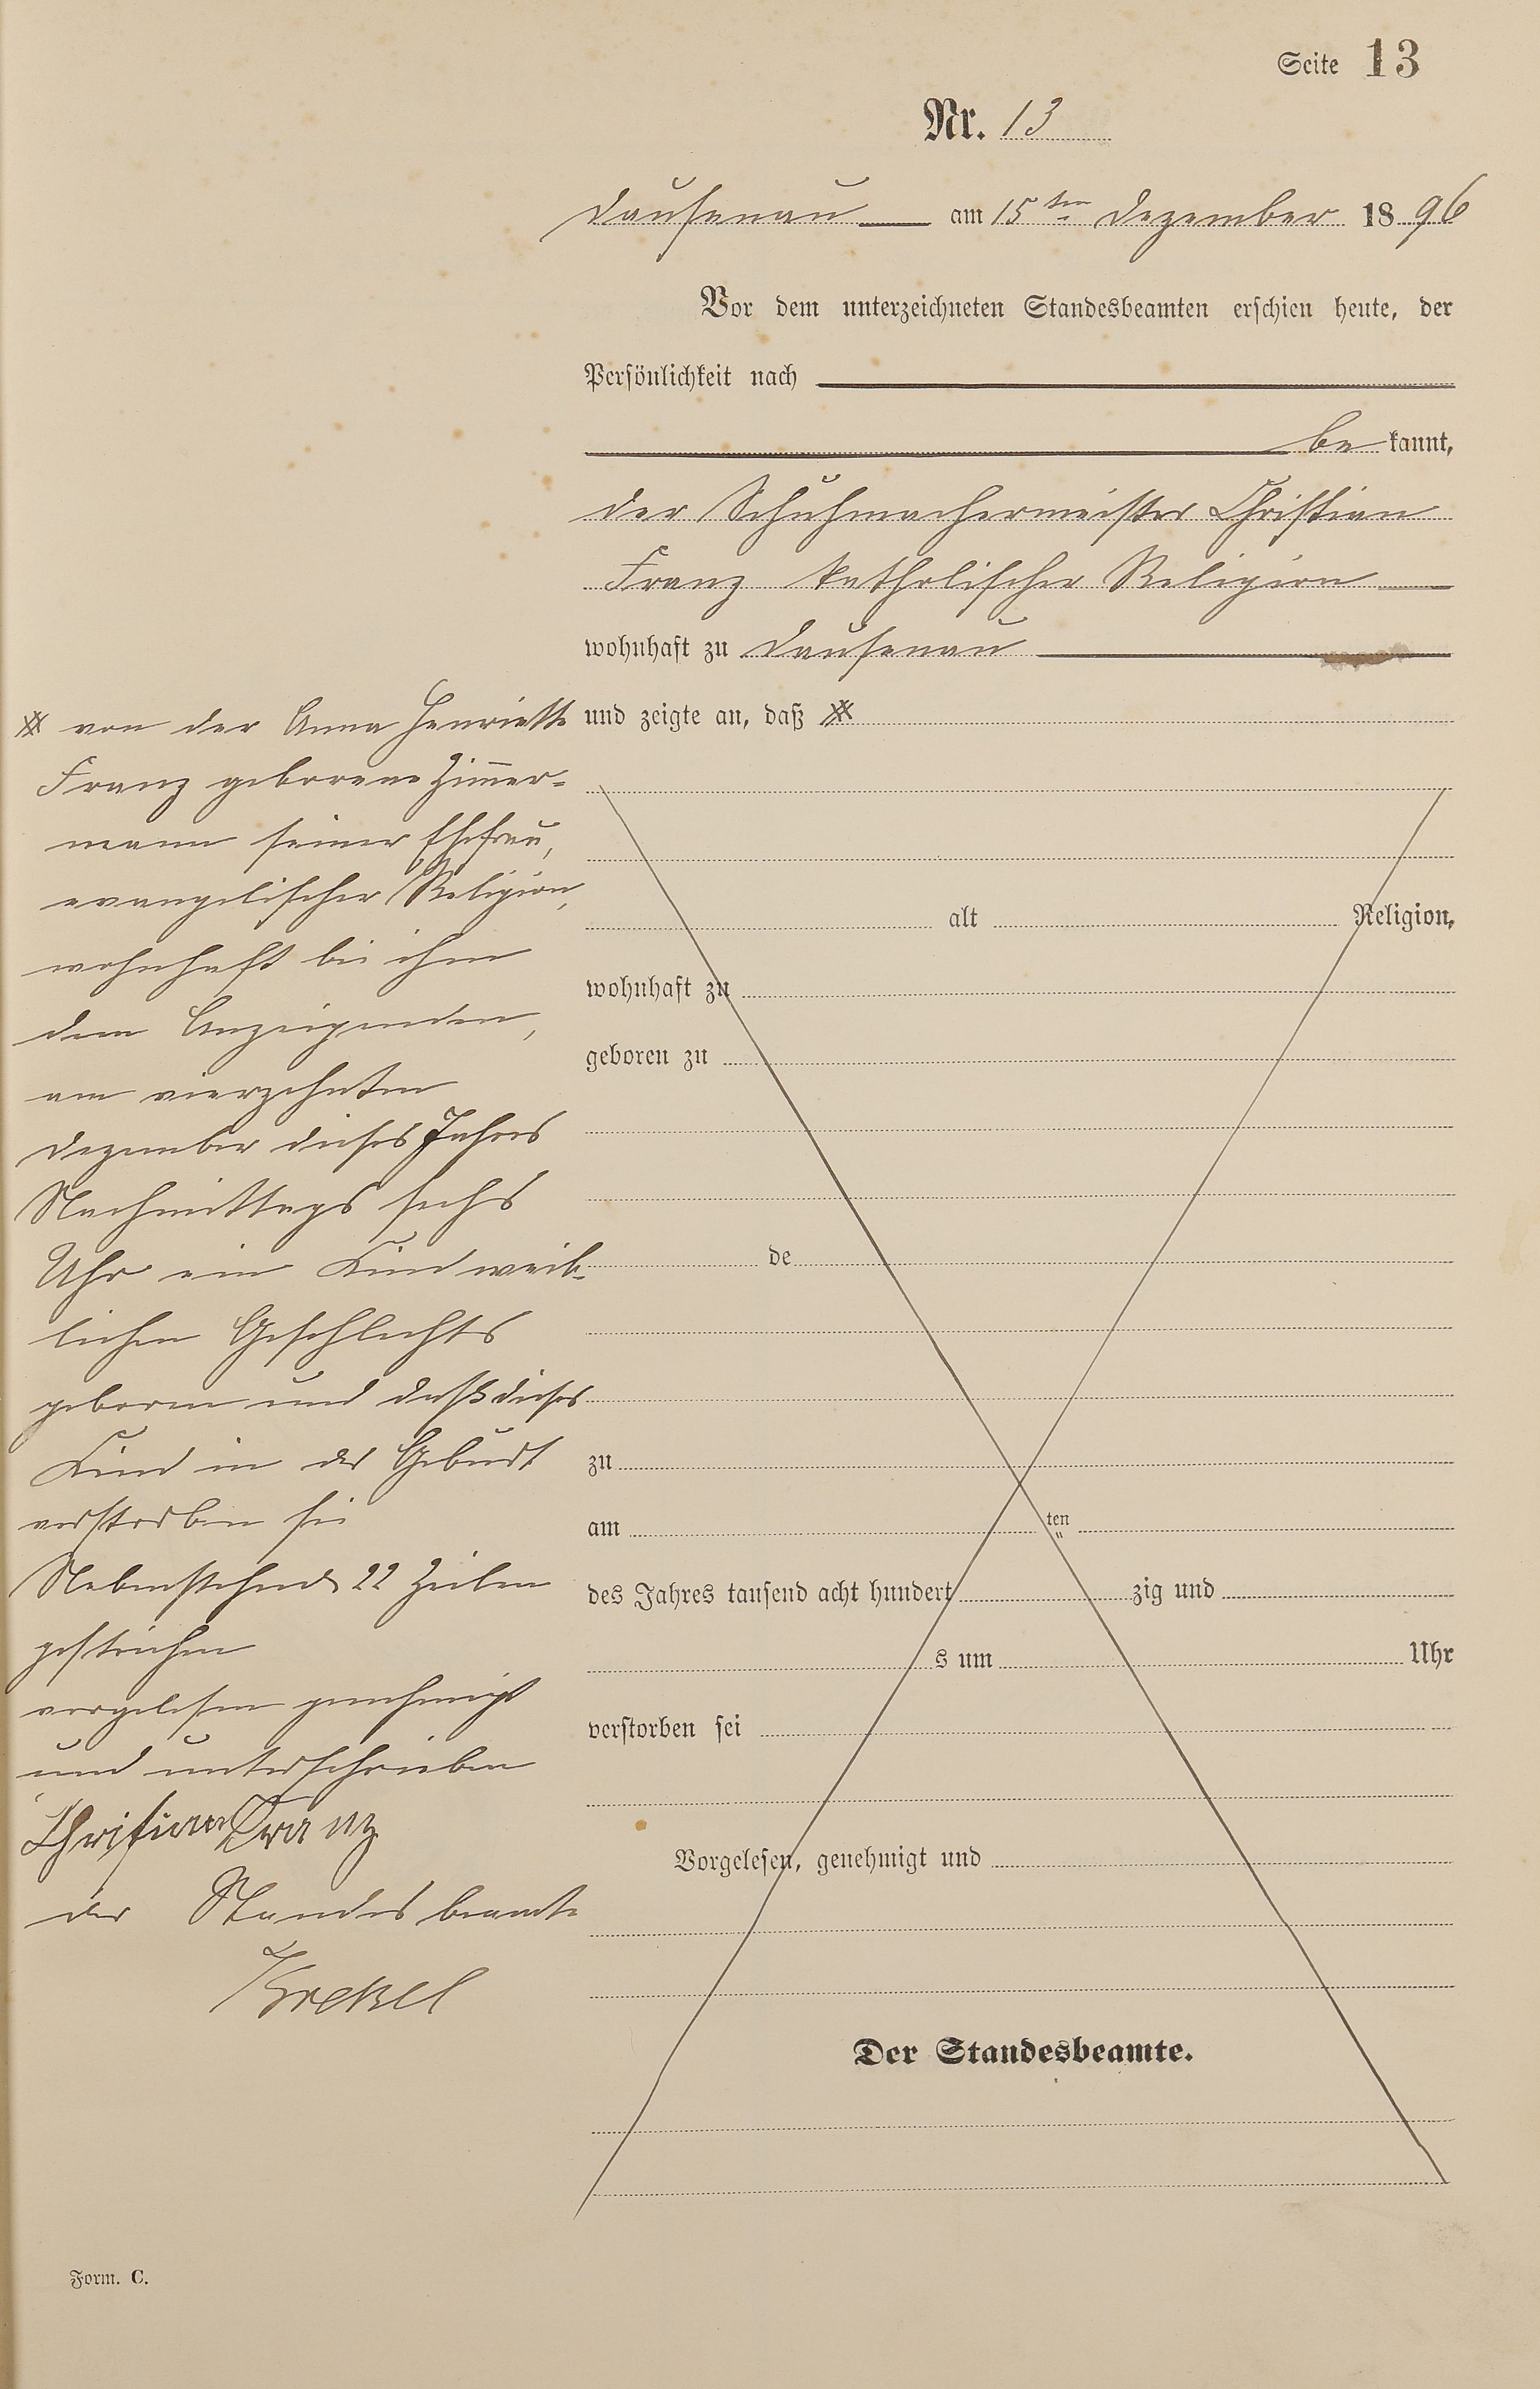 Seite 13
Nr. 13
Dausenau am 15ten Dezember 1896
Vor dem unterzeichneten Standesbeamten erschien heute, der
Persönlichkeit nach
be kannt,
der Schuhmachermeister Christian
Franz katholischer Religion
wohnhaft zu Dausenau
und zeigte an, daß #
# von der Anna Henriette
Franz geborene Zimmer-
mann seiner Ehefrau,
evangelischer Religion,
wohnhaft bei ihm
dem Anzeigenden,
am vierzehnten
Dezember dieses Jahres
Nachmittags sechs
Uhr ein Kind weib-
lichen Geschlechts
geboren und daß dieses
Kind in der Geburt
verstorben sei
Nebenstehende 22 Zeilen
gestrichen
vorgelesen genehmigt
und unterschrieben
Christian Franz
der Standesbeamte
Krekel
alt Religion,
wohnhaft zu
geboren zu
de
zu
am ten
des Jahres tausend acht hundert zig und
s um Uhr
verstorben sei
Vorgelesen, genehmigt und
Der Standesbeamte.
Form. C.